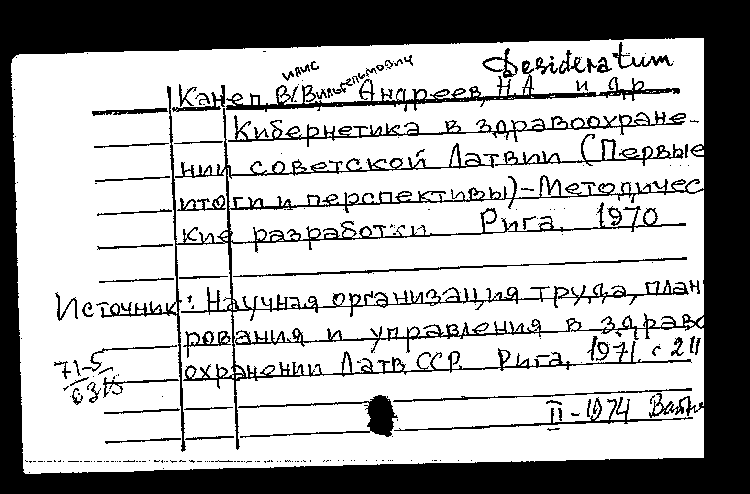 Desideratum
Канеп, В.(Вильгельмович Андреев, Н.А. и др
Кибернетика в здравоохране-
нии советской Латвии (Первые
итоги и перспективы) - Методичес
кие разработки. Рига, 1970
Источник: Научная организация труда, план
рования и управления в здраво
охранении Латв. ССР. Рига, 1971. с 211
71-5
II - 1974